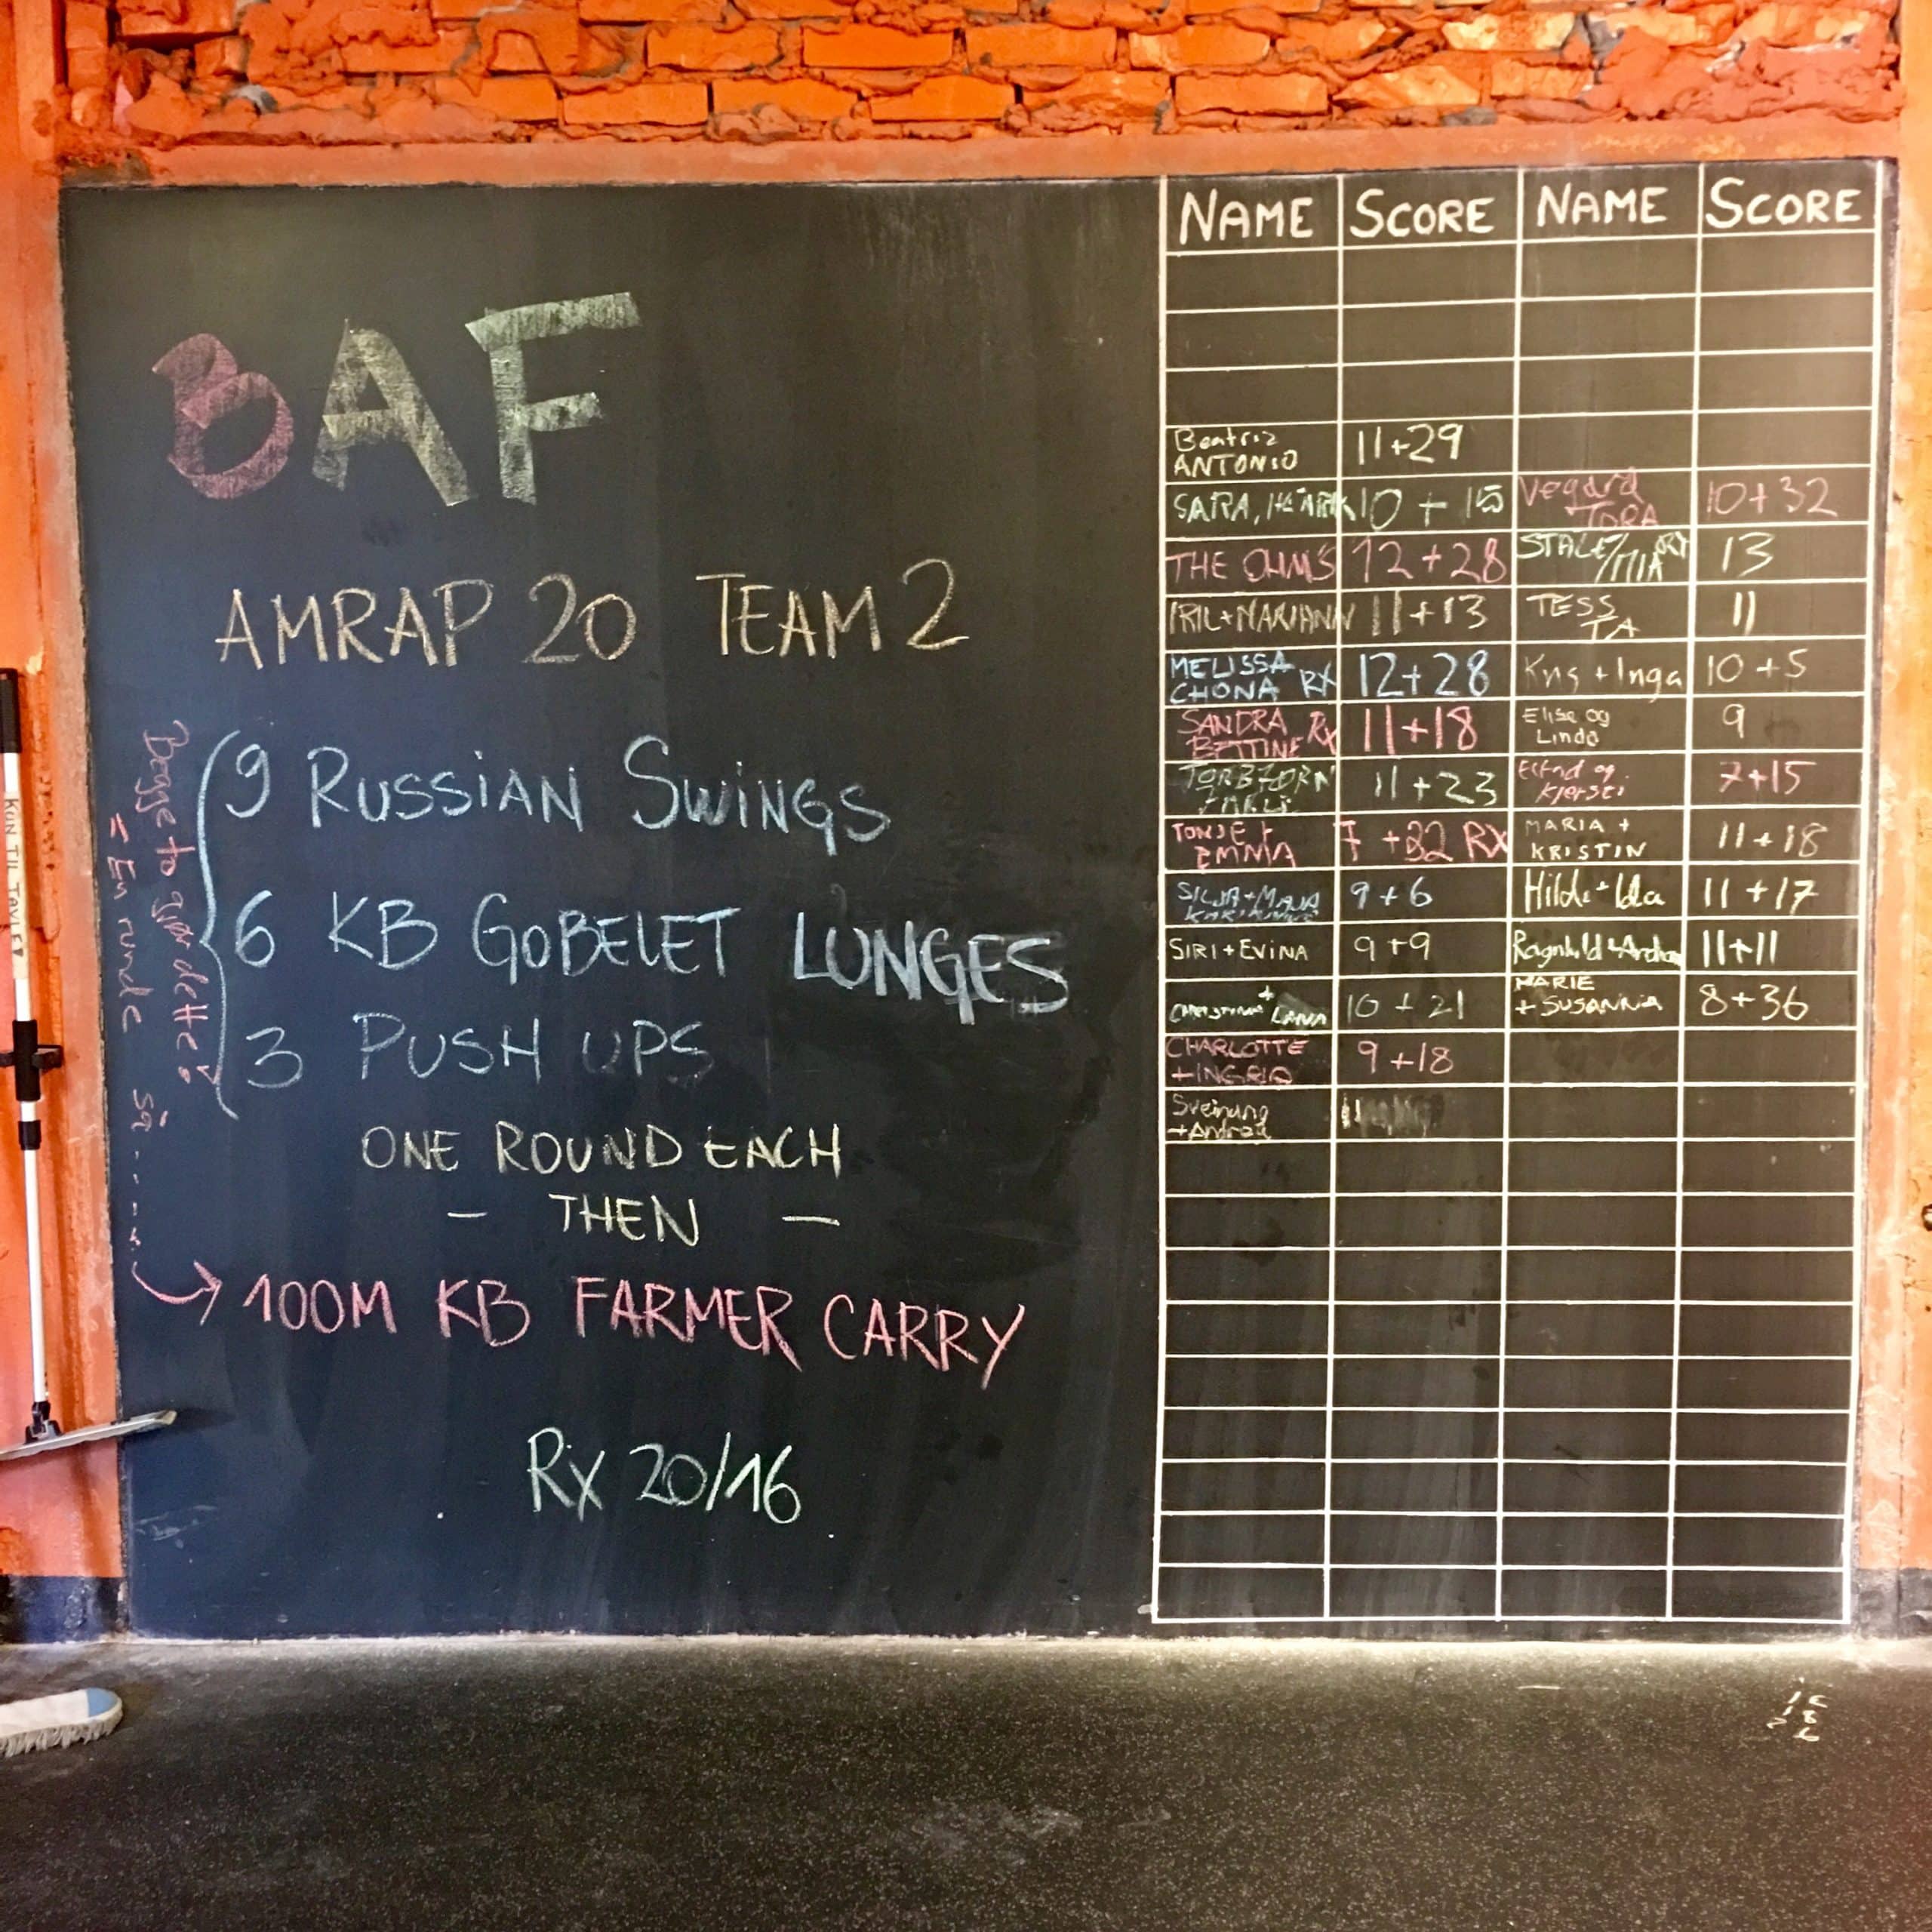 NAME SCORE NAME SCORE
BAF
AMRAP 20 TEAM 2
9 RUSSIAN SWINGS
6 KB GOBELET LUNGES
3 PUSH UPS
Begge to gjør dette
= En runde så
ONE ROUND EACH
- THEN -
→ 100M KB FARMER CARRY
Rx 20/16
KUN TIL TAVLE!
Beatriz
ANTONIO 11+29
SARA, 10 + 15 Vegard
TORA 10+32
THE OHM'S 12+28 STALE/MIA 13
IRIL+MARIANN 11+13 TESS
TA 11
MELISSA
CHONA RX 12+28 Kris + Inga 10+5
SANDRA
BETTINE Rx 11+18 Elise og
Linda 9
TORBJORN
11+23 og
Kjersti 7+15
TONJE +
EMMA 7 +32 RX MARIA +
KRISTIN 11+18
SILJA+MAJA
9+6 Hilde+Ida 11+17
SIRI+EVINA 9+9 Ragnhild 11+11
+ LANA 10+21 MARIE
+ SUSANNA 8+36
CHARLOTTE
+INGRID 9+18
Sveinung
+Andrea 11